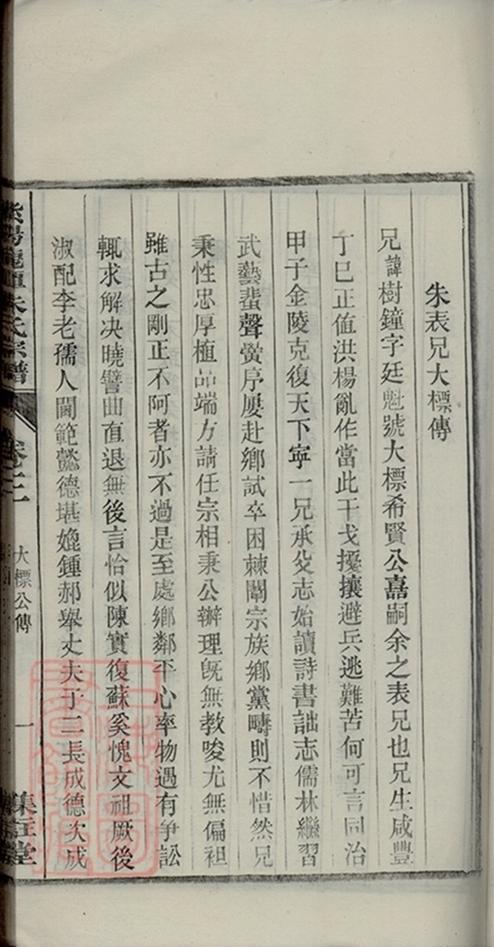 朱表兄大標傳
兄諱樹鐘字廷魁號大標希賢公嘉嗣余之表兄也兄生咸豐
丁巳正值洪楊亂作當此干戈擾攘避兵逃難苦何可言同治
甲子金陵克復天下寧一兄承父志始讀詩書詘志儒林繼習
武藝蜚聲黌序屢赴鄉試卒困棘闈宗族鄉黨疇則不惜然兄
秉性忠厚植品端方請任宗相秉公辦理既無教唆尤無偏袒
雖古之剛正不阿者亦不過是至處鄉鄰平心率物遇有爭訟
輒求解决曉譬曲直退無後言恰似陳實復蘇奚愧文祖厥後
淑配李老孺人閫範懿德堪媲鍾郝舉丈夫子二長成德次成
朱氏宗譜
卷之二
大標公傳
一
集註堂